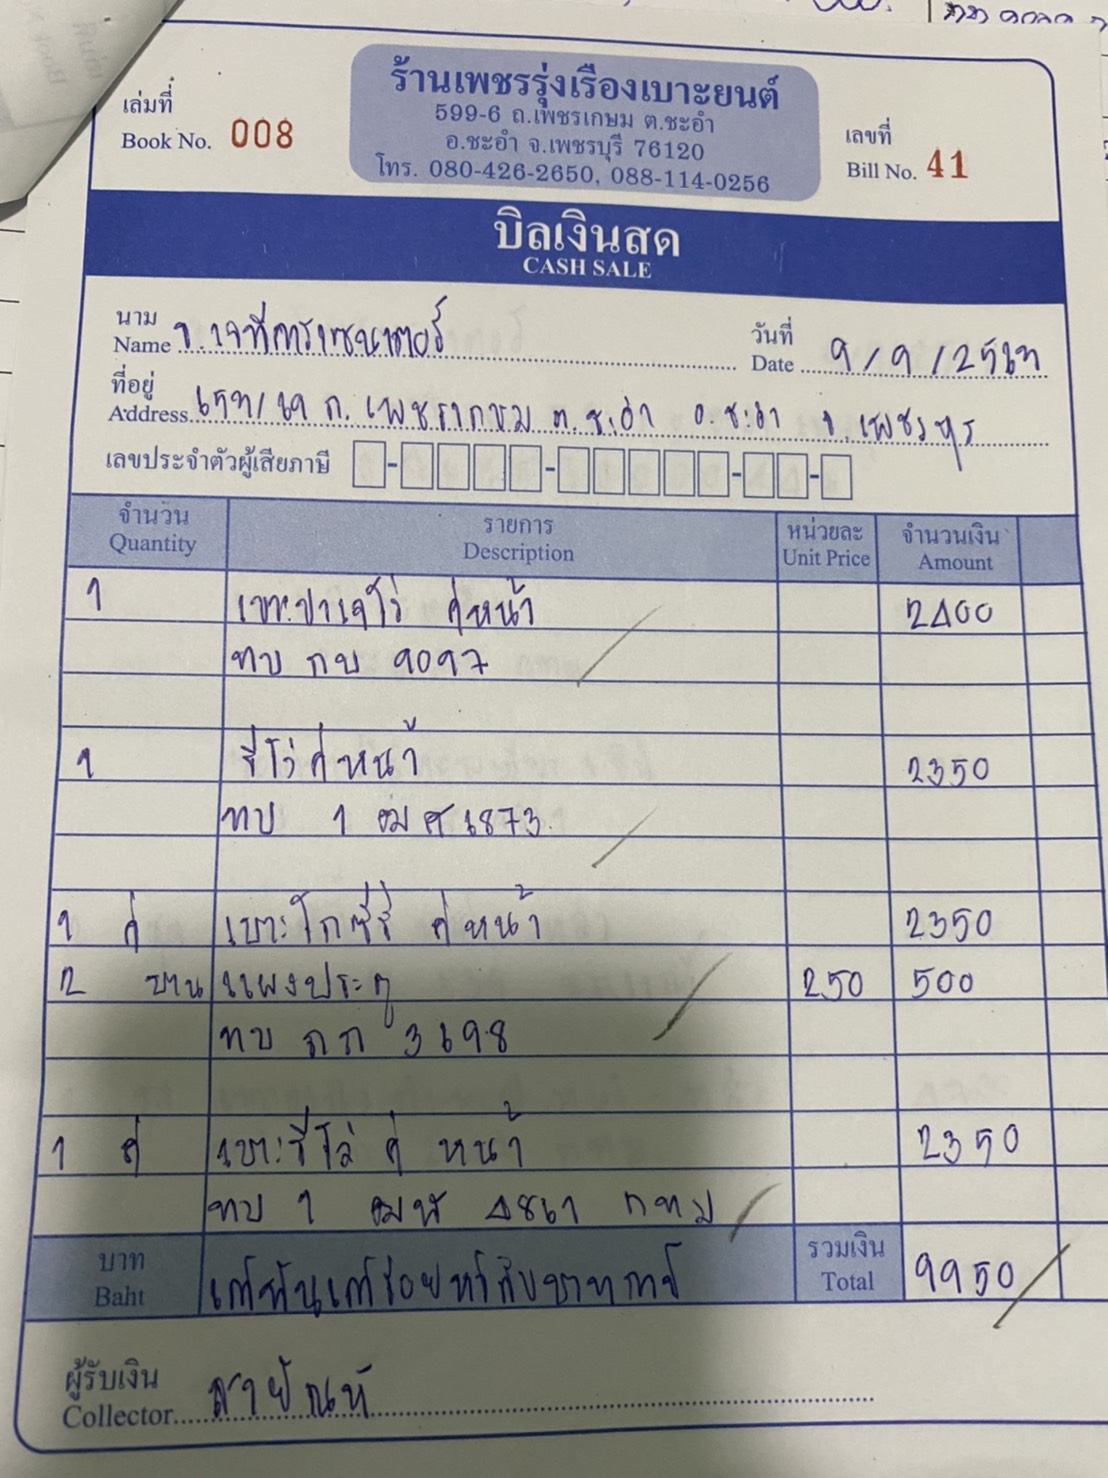 ร้านเพชรรุ่งเรืองเบาะยนต์
599-6 ถ.เพชรเกษม ต.ชะอำ
อ.ชะอำ จ.เพชรบุรี 76120
โทร. 080-426-2650, 088-114-0256
เล่มที่
Book No. 008
เลขที่
Bill No. 41
บิลเงินสด
CASH SALE
นาม
Name
วันที่
Date 9/9/2567
ที่อยู่
Address ถ. เพชรเกษม ต.ชะอำ อ.ชะอำ จ.เพชรบุรี
เลขประจำตัวผู้เสียภาษี
จำนวน รายการ หน่วยละ จำนวนเงิน
Quantity Description Unit Price Amount
1 เบาะปาเจโร่ คู่หน้า 2400
ทบ กบ 9097
1 รีโว่คู่หน้า 2350
ทบ 1 6873
1 คู่ เบาะ คู่หน้า 2350
2 บาน แผงประตู 250 500
ทบ 3698
1 คู่ เบาะรีโว่ คู่ หน้า 2350
ทบ 1 4861 กทม
บาท เก้าพันเก้าร้อยห้าสิบบาทถ้วน รวมเงิน 9950
Baht Total
ผู้รับเงิน
Collector สายัณห์